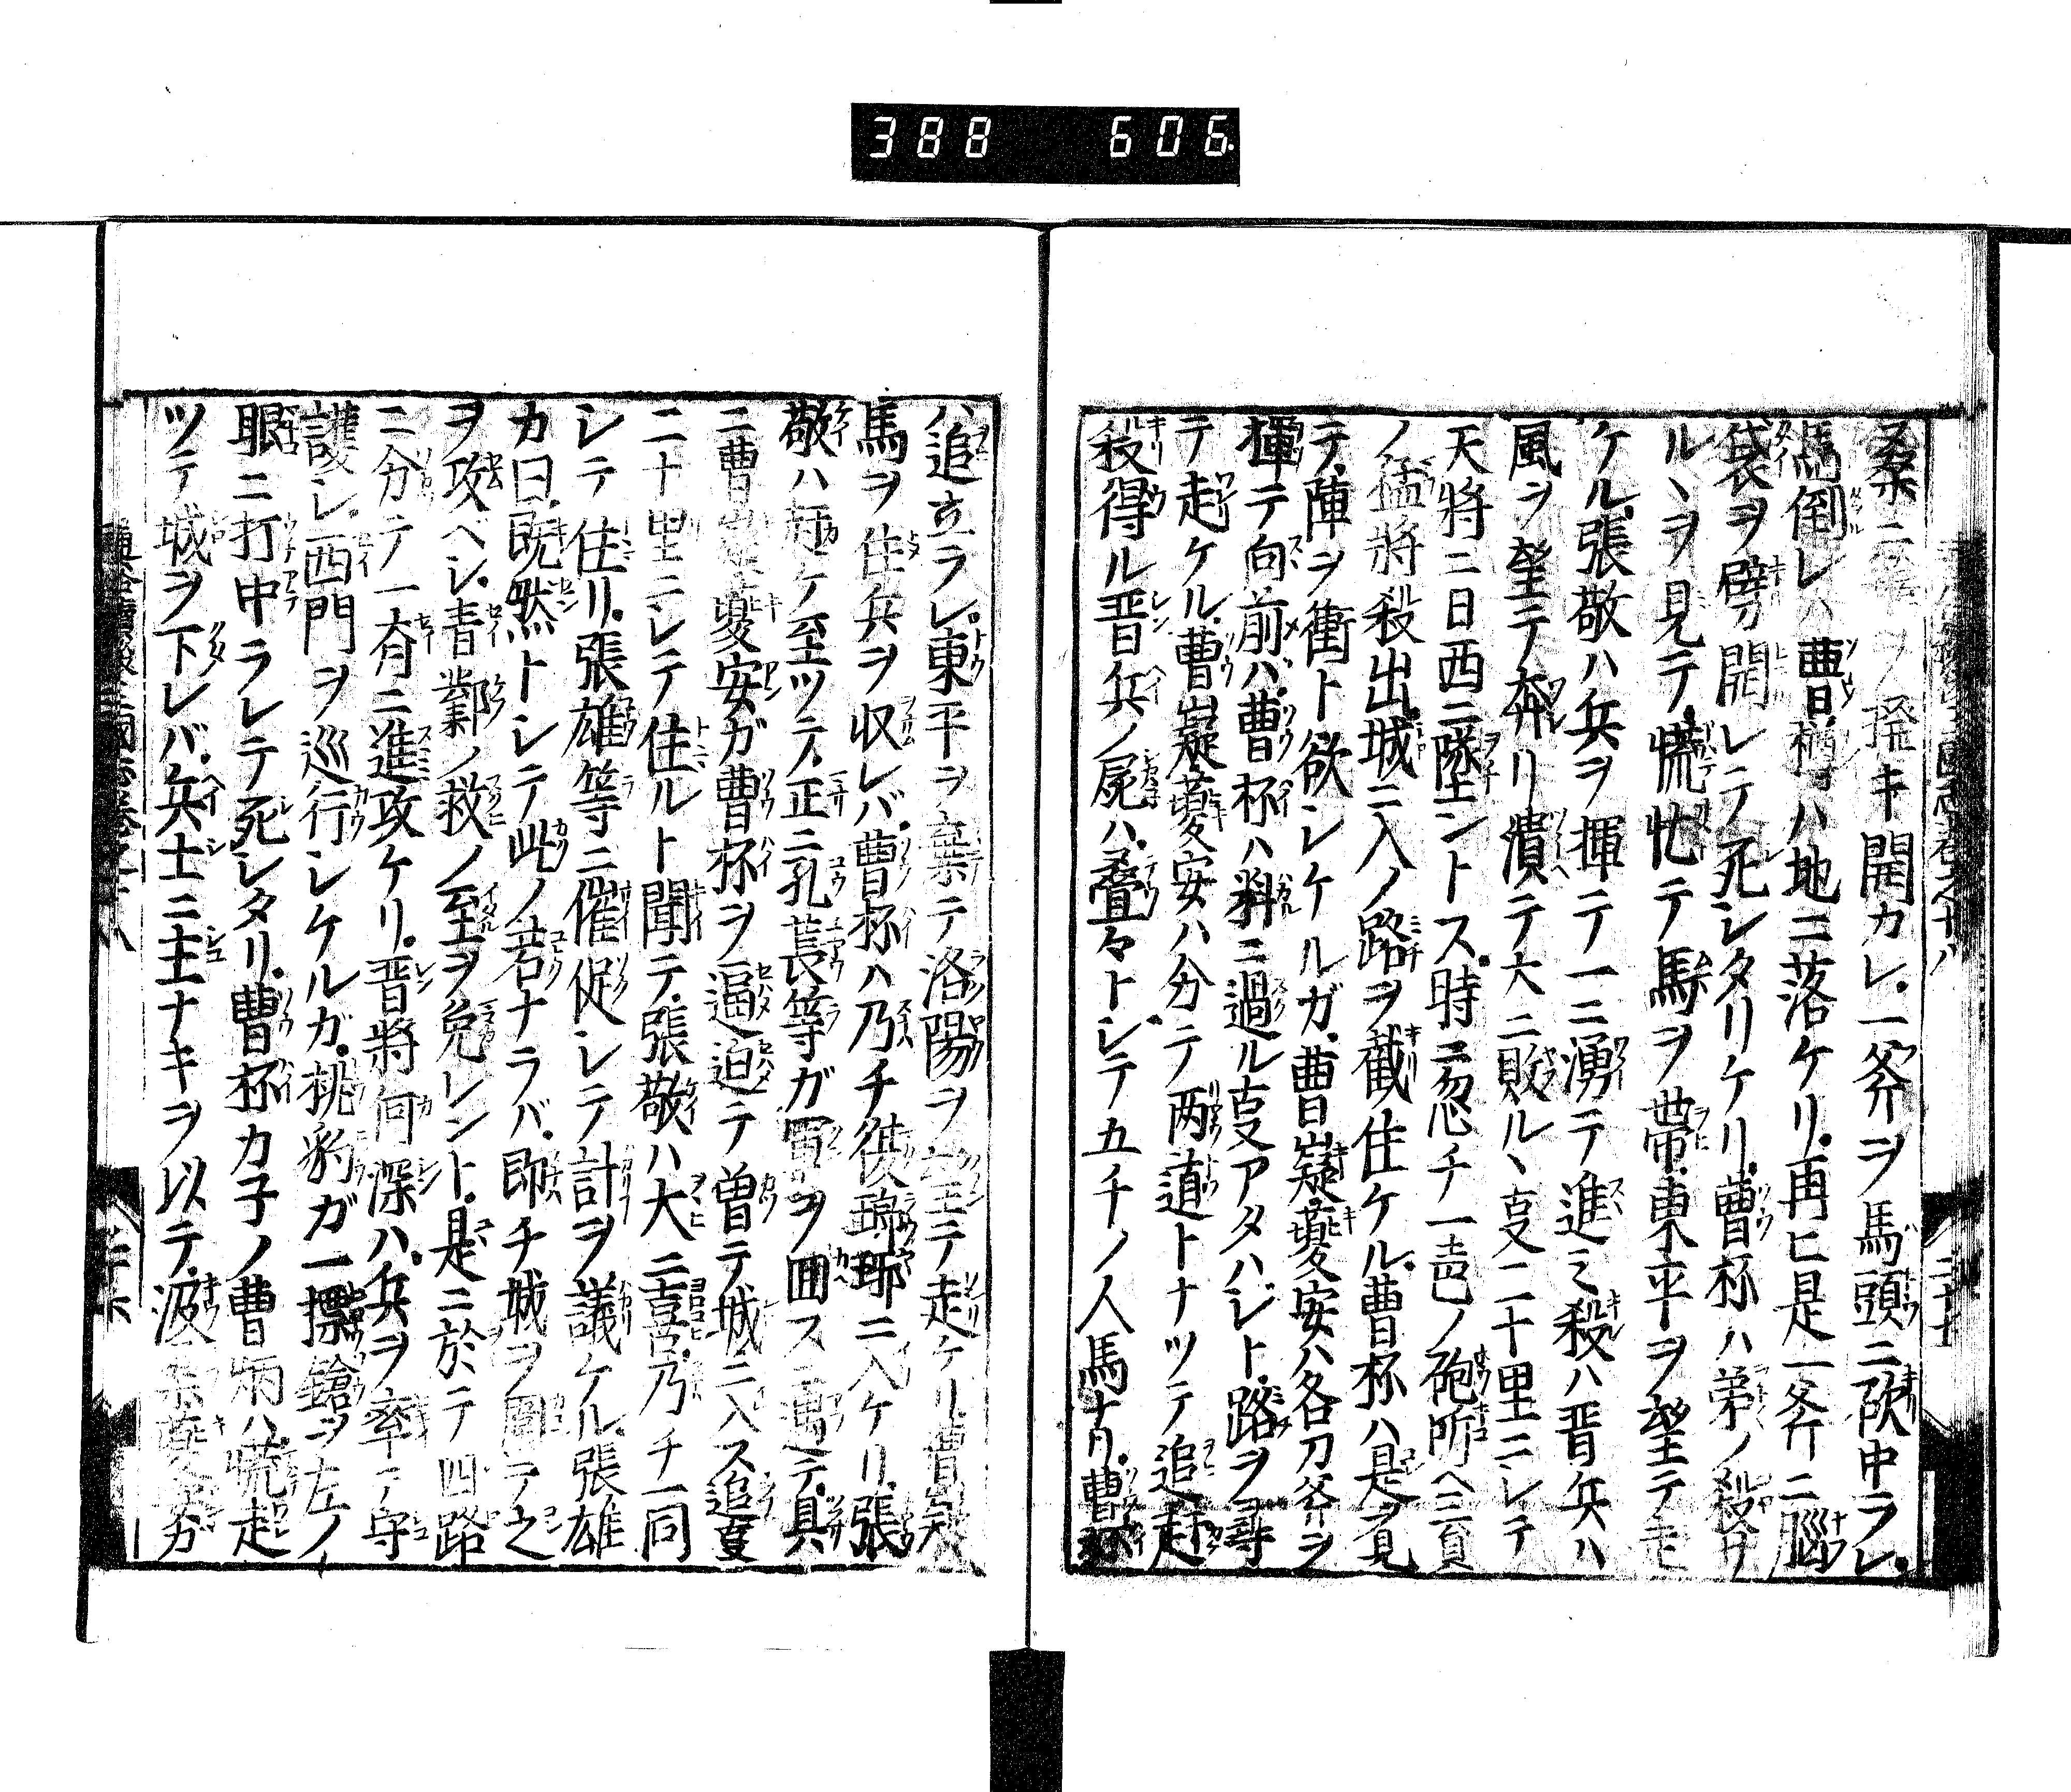 388 606
又桑ニ ヲ撥キ開カレ一斧ヲ馬頭ニ砍中ラレ
馬倒レハ曹 ハ地ニ落ケリ再ヒ是一斧ニ脳
袋ヲ劈リ開レテ死シタリケリ曹杯ハ弟ノ殺サ
ルヽヲ見テ慌忙テ馬ヲ帯東平ヲ望テ走
ケル張敬ハ兵ヲ揮テ一ニ湧テ進ミ殺ハ晋兵ハ
風ヲ望テ奔リ潰テ大ニ敗ルヽ㕝二十里ニシテ
天將ニ日西ニ墜ントス時ニ忽チ一声ノ砲所ヘ三員
ノ猛將殺出城ニ入ノ路ヲ截住ケル曹杯ハ是ヲ見
テ陣ヲ衝ト欲シケルガ曹嶷夔安ハ各刀斧ヲ
揮テ向前ハ曹杯ハ料ニ過ル㕝アタハジト路ヲ尋
テ起ケル曹嶷夔安ハ分テ两道トナツテ追赶
殺得ル晋兵ノ屍ハ疊々トシテ五千ノ人馬ナリ曹杯
ハ追立ラレ東平ヲ棄テ洛陽ヲ望テ走ケリ曹嶷
馬ヲ住兵ヲ収レバ曹杯ハ乃チ後瑯琊ニ入ケリ張
敬ハ赶ケ至ツテ正ニ孔萇等ガ軍ヲ囲スニ遇テ具
ニ曹嶷夔安ガ曹杯ヲ逼迫テ曽テ城ニ入ス追㕝
二十里ニシテ住ルト聞テ張敬ハ大ニ喜乃チ一同
シテ住リ張雄等ニ催促シテ計ヲ議ケル張雄
カ曰既然トシテ此ノ若ナラバ即チ城ヲ圍テ之
ヲ攻ベシ青鄴ノ救ノ至ヲ免レント是ニ於テ四路
ニ分テ一斉ニ進攻ケリ晋將何深ハ兵ヲ率テ守
護シ西門ヲ巡行シケルガ桃豹ガ一摽鎗ヲ左ノ
眼ニ打中ラレテ死シタリ曹杯カ子ノ曹炳ハ慌起
ツテ城ヲ下レバ兵士ニ主ナキヲ以テ汲桑夔安